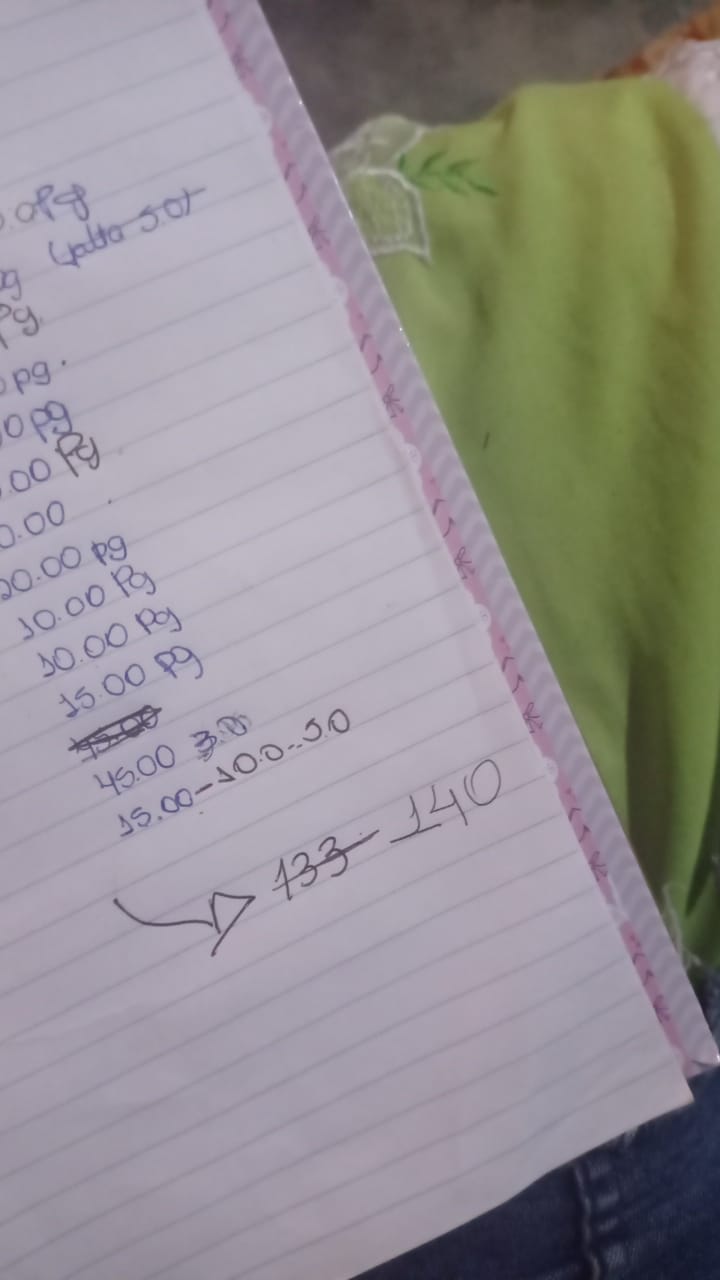 pg
(falta 50)
pg
pg.
0 pg
.00 Pg
0.00
20.00 pg
10.00 Pg
10.00 Pg
15.00 pg
45.00
15.00-10.0..5.0
133 140